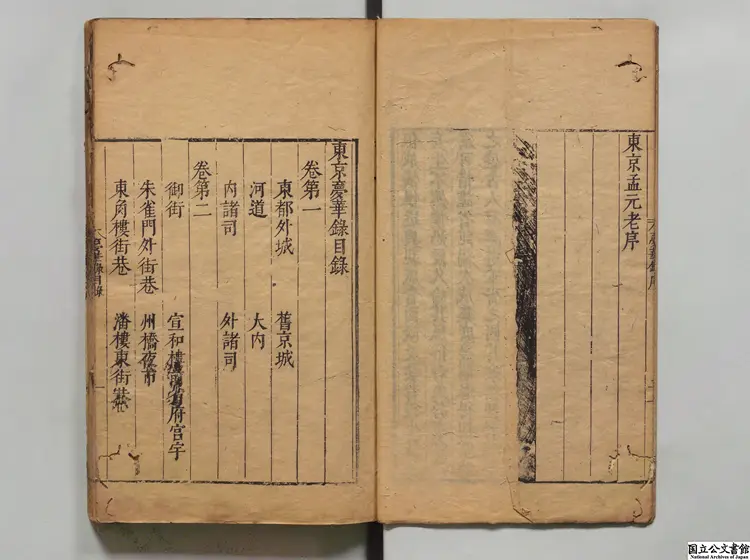 東京孟元老序
東京夢華錄目錄
卷第一
東都外城　舊京城
河道　大内
内諸司　外諸司
卷第二
御街　宣和樓省府宫宇
朱雀門外街巷　州橋夜市
東角樓街巷　潘樓東街巷
国立公文書館
National Archives of Japan